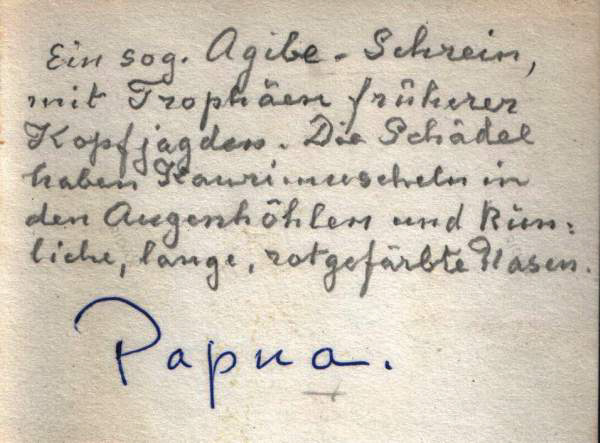 Ein sog. Agibe-Schrein,
mit Trophäen früherer
Kopfjagden. Die Schädel
haben Kaurimuscheln in
den Augenhöhlen und kün:
liche, lange, rotgefärbte Nasen.
Papua.